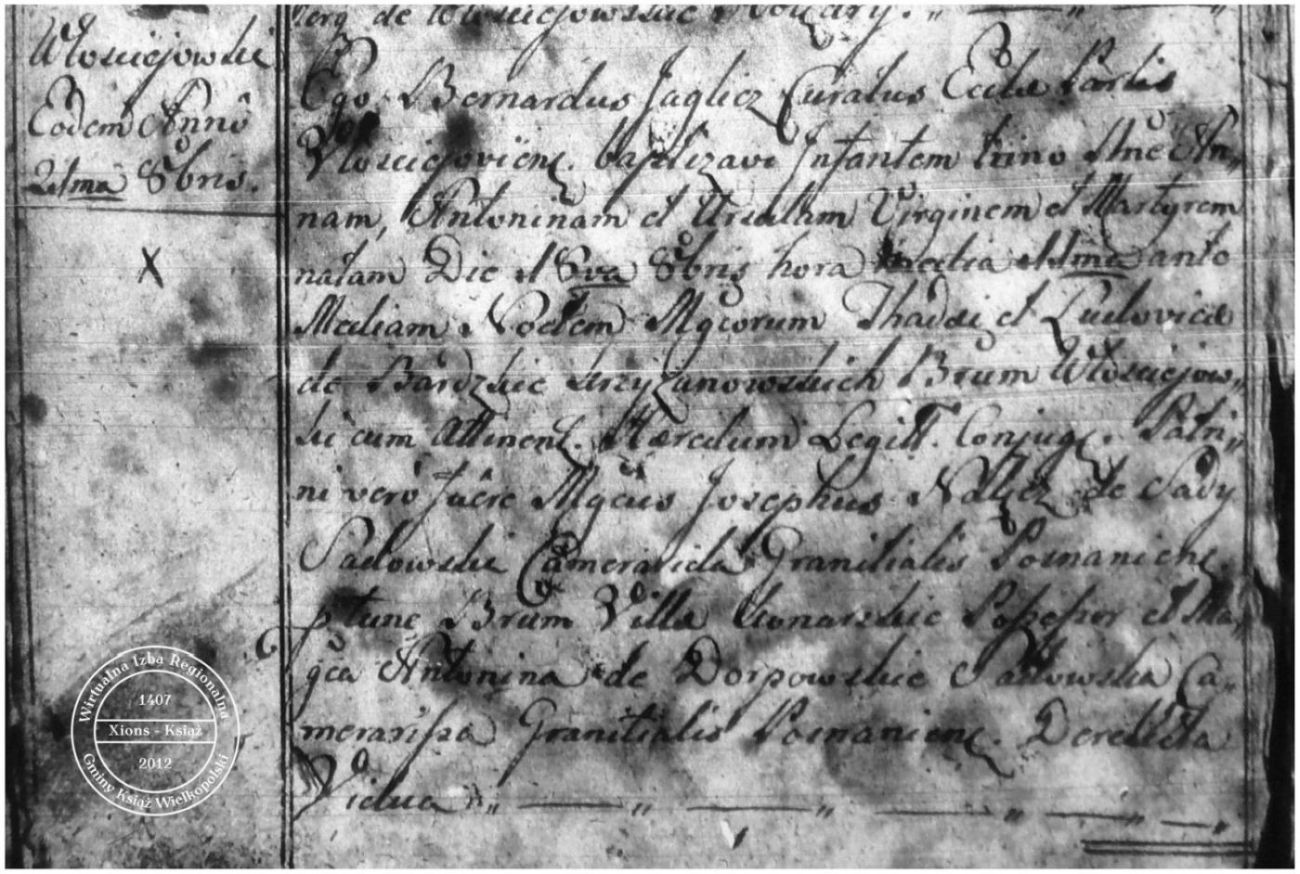 de Włosciejowskie
Włosciejowski
Eodem Anno
21ma 8bris.
X
Ego Bernardus Jaglicz Curatus Eccla
Włosciejoviens. baptizavi Infantem trino Nne An„
nam, Antoninam et Ursulam Virginem et Martyrem
natam Die 8bris hora media ante
Mediam Noctem Mgcorum Thadei et Ludovica
de Bardzkie Krzyżanowskich Brum Włosciejow„
ski cum Attinens. Hæredum Legitt. Conjug. Patri„
ni vero fuere Mgcus Josephus Nałęcz de Sady
Sadowski Camerarida Granitialis Posnaniens
ptunc Brum Villa Konarskie Possessor et Ma„
gca Antonina de Dorpowskie Sadowska Ca„
merarissa Granitialis Posnaniens. Derelicta
Vidua
Wirtualna Izba Regionalna
1407
Xions - Książ
2012
Gminy Książ Wielkopolski